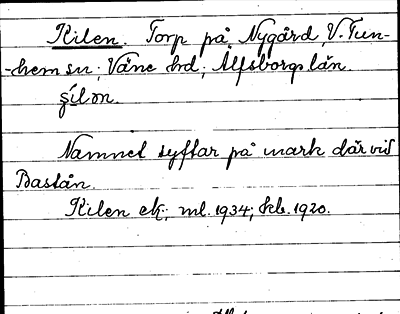 Kilen. Torp på Nygård, V. Tun-
-hem sn; Väne hd; Älfsborgs län.
Namnet syftar på mark där vid
Bastån.
Kilen ek; ml. 1934; kb. 1920.